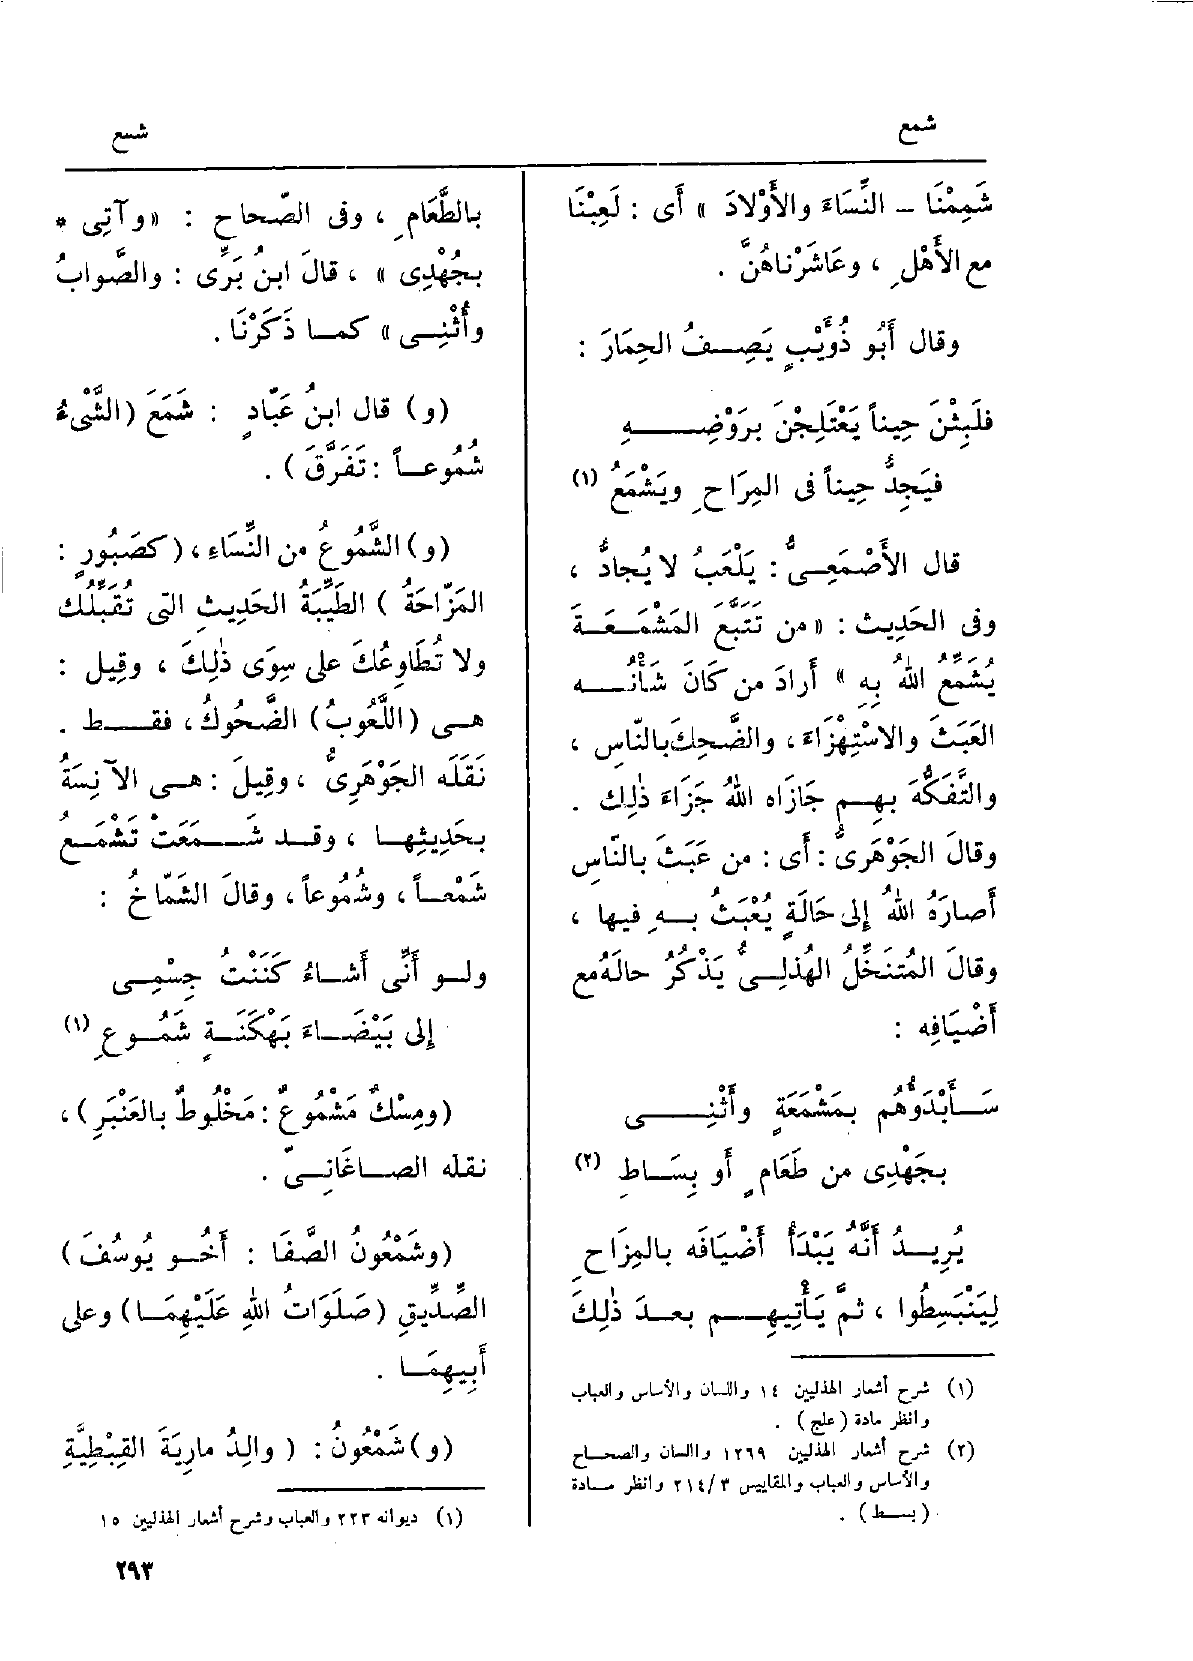 شمع
شمع
شَمِمْنَا – النِّسَاءَ والأَوْلادَ » أَى : لَعِبْنَا
مع الأَهْلِ ، وعَاشَرْناهُنَّ .
وقال أَبُو ذُوَيْبٍ يَصِفُ الحِمَارَ :
فلَبِثْنَ حِيناً يَعْتَلِجْنَ بَروْضِهِ
فيَجِدُّ حِيناً فى المِرَاحِ ويَشْمَعُ (١)
قال الأَصْمَعِىُّ : يَلْعَبُ لا يُجادُّ ،
وفى الحَدِيث : « من تَتَبَّعَ المَشْمَعَةَ
يُشَمِّعُ اللهُ بِهِ » أَرادَ من كَانَ شَأْنُه
العَبَثَ والاسْتِهْزَاءَ ، والضَّحِكَ بالنّاسِ ،
والتَّفَكُّهَ بهم جَازَاه اللهُ جَزَاءَ ذٰلِك .
وقالَ الجَوْهَرىُّ : أَى : من عَبَثَ بالنّاسِ
أَصارَهُ اللهُ إِلى حَالَةٍ يُعْبَثُ بهِ فيها ،
وقالَ المُتَنَخِّلُ الهُذلِىُّ يَذْكُرُ حالَهُ مع
أَضْيَافِه :
سَأَبْدَؤُهُم بمَشْمَعَةٍ وأَثْنِى
بجَهْدِى من طَعَامٍ أَو بِسَاطِ (٢)
يُرِيدُ أَنَّهُ يَبْدَأُ أَضْيَافَه بالمِزَاحِ
لِيَنْبَسِطُوا ، ثمَّ يَأْتِيهِم بعدَ ذٰلِكَ
(١) شرح أشعار الهذليين ١٤ واللسان والأساس والعباب
وانظر مادة (علج) .
(٢) شرح أشعار الهذليين ١٢٦٩ واللسان والصحاح
والأساس والعباب والمقاييس ٢١٤/٣ وانظر مادة
(بسط) .
بالطَّعَامِ ، وفى الصّحاحِ : « وآتِى *
بجُهْدِى » ، قالَ ابنُ بَرِّى : والصَّوابُ
وأُثْنِى » كما ذَكَرْنَا .
(و) قال ابنُ عَبّادٍ : شَمَعَ (الشَّىْءُ
شُمُوعاً : تَفَرَّقَ) .
(و) الشَّمُوعُ من النِّسَاءِ ، (كصَبُورٍ :
المَزّاحَةُ ) الطَيِّبَةُ الحَدِيثِ التى تُقَبِّلُك
ولا تُطَاوِعُكَ على سِوَى ذٰلِكَ ، وقِيل :
هى (اللَّعُوبُ) الضَّحُوكُ ، فقط .
نَقَلَه الجَوْهَرِىُّ ، وقِيلَ : هى الآنِسَةُ
بحَدِيثِها ، وقد شَمَعَتْ تَشْمَعُ
شَمْعاً ، وشُمُوعاً ، وقالَ الشَّمّاخُ :
ولو أَنِّى أَشاءُ كَنَنْتُ جِسْمِى
إِلى بَيْضَاءَ بَهْكَنَةٍ شَمُوعِ (١)
(ومِسْكٌ مَشْمُوعٌ : مَخْلُوطٌ بالعَنْبَرِ) ،
نقله الصاغَانِىّ .
(وشَمْعُونُ الصَّفَا : أَخُو يُوسُفَ )
الصِّدِّيقِ (صَلَوَاتُ اللهِ عَلَيْهِمَا) وعلى
أَبِيهِمَا .
(و) شَمْعُونُ : ( والِدُ مارِيَةَ القِبْطِيَّةِ
(١) ديوانه ٢٢٣ والعباب وشرح أشعار الهذليين ١٥
٢٩٣